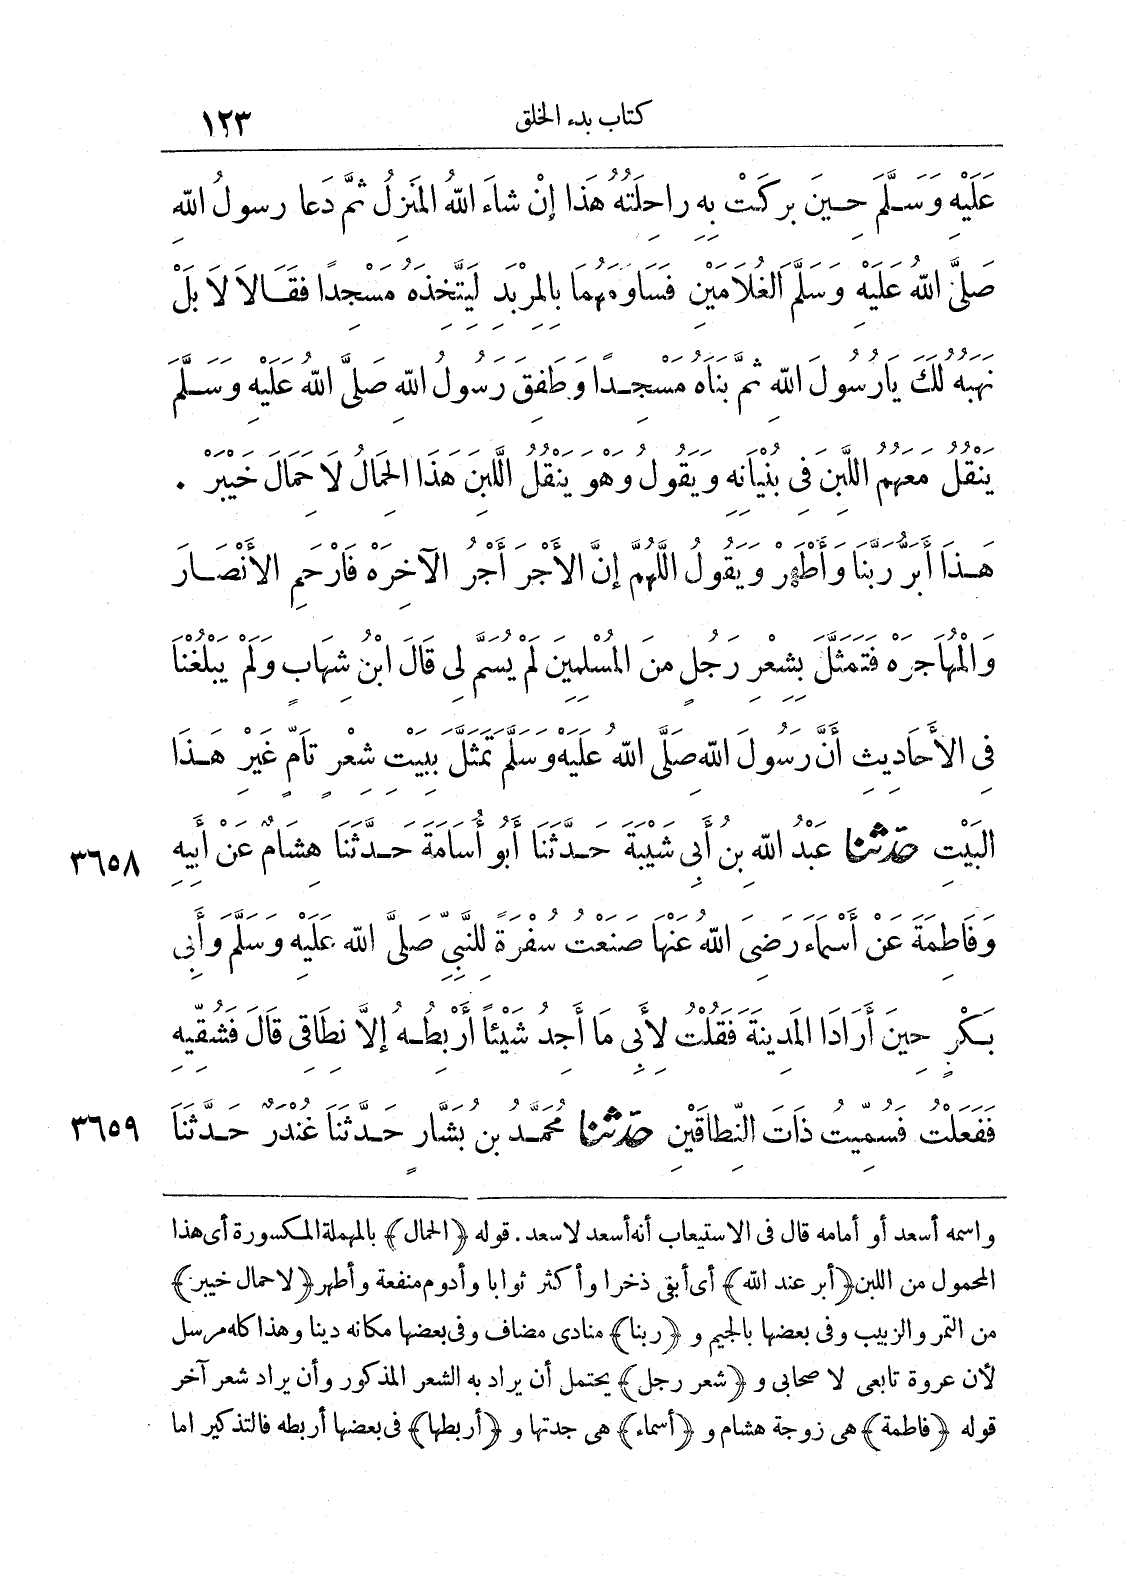 كتاب بدء الخلق ١٢٣
عَلَيْهِ وَسَلَّمَ حِينَ بَرَكَتْ بِهِ رَاحِلَتُهُ هَذَا إِنْ شَاءَ اللهُ المَنْزِلُ ثُمَّ دَعَا رسولُ اللهِ
صَلَّى اللهُ عَلَيْهِ وَسَلَّمَ الْغُلَامَيْنِ فَسَاوَمَهُمَا بِالمِرْبَدِ لِيَتَّخِذَهُ مَسْجِدًا فَقَالَا لَا بَلْ
نَهَبُهُ لَكَ يَارَسُولَ اللهِ ثُمَّ بَنَاهُ مَسْجِدًا وَطَفِقَ رَسُولُ اللهِ صَلَّى اللهُ عَلَيْهِ وَسَلَّمَ
يَنْقُلُ مَعَهُمُ اللَّبِنَ فِى بُنْيَانِهِ وَيَقُولُ وَهْوَ يَنْقُلُ اللَّبِنَ هَذَا الحِمَالُ لَا حِمَالَ خَيْبَرْ .
هَذَا أَبَرُّ رَبَّنَا وَأَطْهَرْ وَيَقُولُ اللَّهُمَّ إِنَّ الأَجْرَ أَجْرُ الآخِرَهْ فَارْحَمِ الأَنْصَارَ
وَالْمُهَاجِرَهْ فَتَمَثَّلَ بِشِعْرِ رَجُلٍ مِنَ المُسْلِمِينَ لَمْ يُسَمَّ لِى قَالَ ابْنُ شِهَابٍ وَلَمْ يَبْلُغْنَا
فِى الأَحَادِيثِ أَنَّ رَسُولَ اللهِ صَلَّى اللهُ عَلَيْهِ وَسَلَّمَ تَمَثَّلَ بِبَيْتِ شِعْرٍ تَامٍّ غَيْرِ هَذَا
البَيْتِ حدّثنا عَبْدُ اللهِ بنُ أَبِى شَيْبَةَ حَدَّثَنَا أَبُو أُسَامَةَ حَدَّثَنَا هِشَامٌ عَنْ أَبِيهِ ٣٦٥٨
وَفَاطِمَةَ عَنْ أَسْمَاءَ رَضِىَ اللهُ عَنْهَا صَنَعْتُ سُفْرَةً لِلنَّبِىِّ صَلَّى اللهُ عَلَيْهِ وَسَلَّمَ وَأَبِى
بَكْرٍ حِينَ أَرَادَا المَدِينَةَ فَقُلْتُ لِأَبِى مَا أَجِدُ شَيْئًا أَرْبِطُهُ إِلَّا نِطَاقِى قَالَ فَشُقِّيهِ
فَفَعَلْتُ فَسُمِّيتُ ذَاتَ النِّطَاقَيْنِ حدّثنا مُحَمَّدُ بن بَشَّارٍ حَدَّثَنَا غُنْدَرٌ حَدَّثَنَا ٣٦٥٩
واسمه أسعد أو أمامه قال فى الاستيعاب أنه أسعد لاسعد. قوله ﴿الحمال﴾ بالمهملة المكسورة أى هذا
المحمول من اللبن ﴿أبر عند الله﴾ أى أبقى ذخرا وأكثر ثوابا وأدوم منفعة وأطهر ﴿لاحمال خيبر﴾
من التمر والزبيب وفى بعضها بالجيم و ﴿ربنا﴾ منادى مضاف وفى بعضها مكانه دينا وهذا كله مرسل
لأن عروة تابعى لا صحابى و ﴿شعر رجل﴾ يحتمل أن يراد به الشعر المذكور وأن يراد شعر آخر
قوله ﴿فاطمة﴾ هى زوجة هشام و ﴿أسماء﴾ هى جدتها و ﴿أربطها﴾ فى بعضها أربطه فالتذكير اما